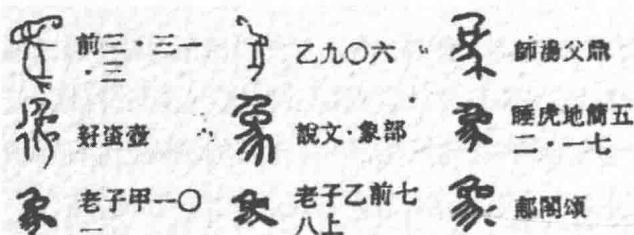 前三·三一·三
乙九〇六
師湯父鼎
好蚉壺
說文·象部
睡虎地簡五二·一七
老子甲一〇一
老子乙前七八上
郙閣頌